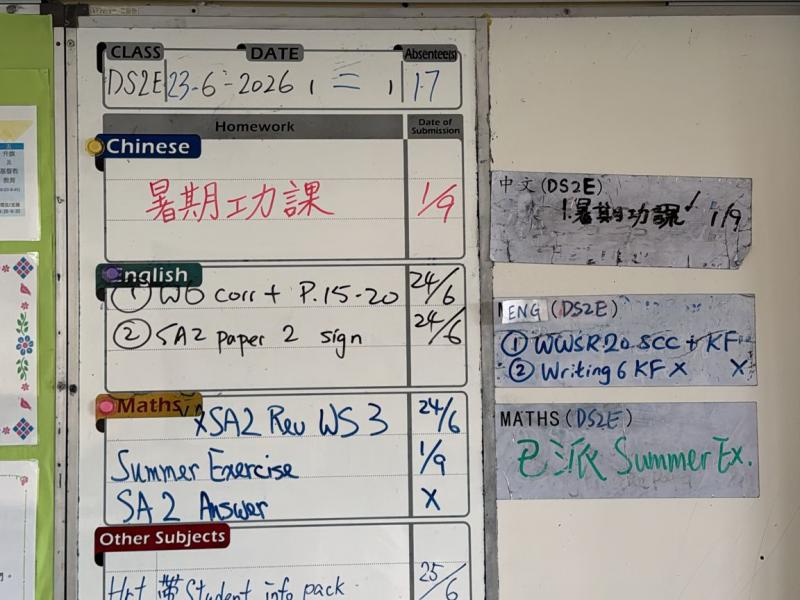 CLASS DATE Absentee(s)
DS2E 23-6-2026, 二, 17
Homework Date of Submission
Chinese
暑期功課 1/9
English
① WB corr + P.15-20 24/6
② SA2 paper 2 sign 24/6
Maths
SA2 Rev WS 3 24/6
Summer Exercise 1/9
SA 2 Answer X
Other Subjects
Hrt 帶 Student info pack 25/6
中文(DS2E)
1.暑期功課✓ 1/9
ENG (DS2E)
① WWSR20 SCC + KF
② Writing 6 KF X X
MATHS (DS2E)
已派 Summer Ex.
升旗
及
基督教
教育